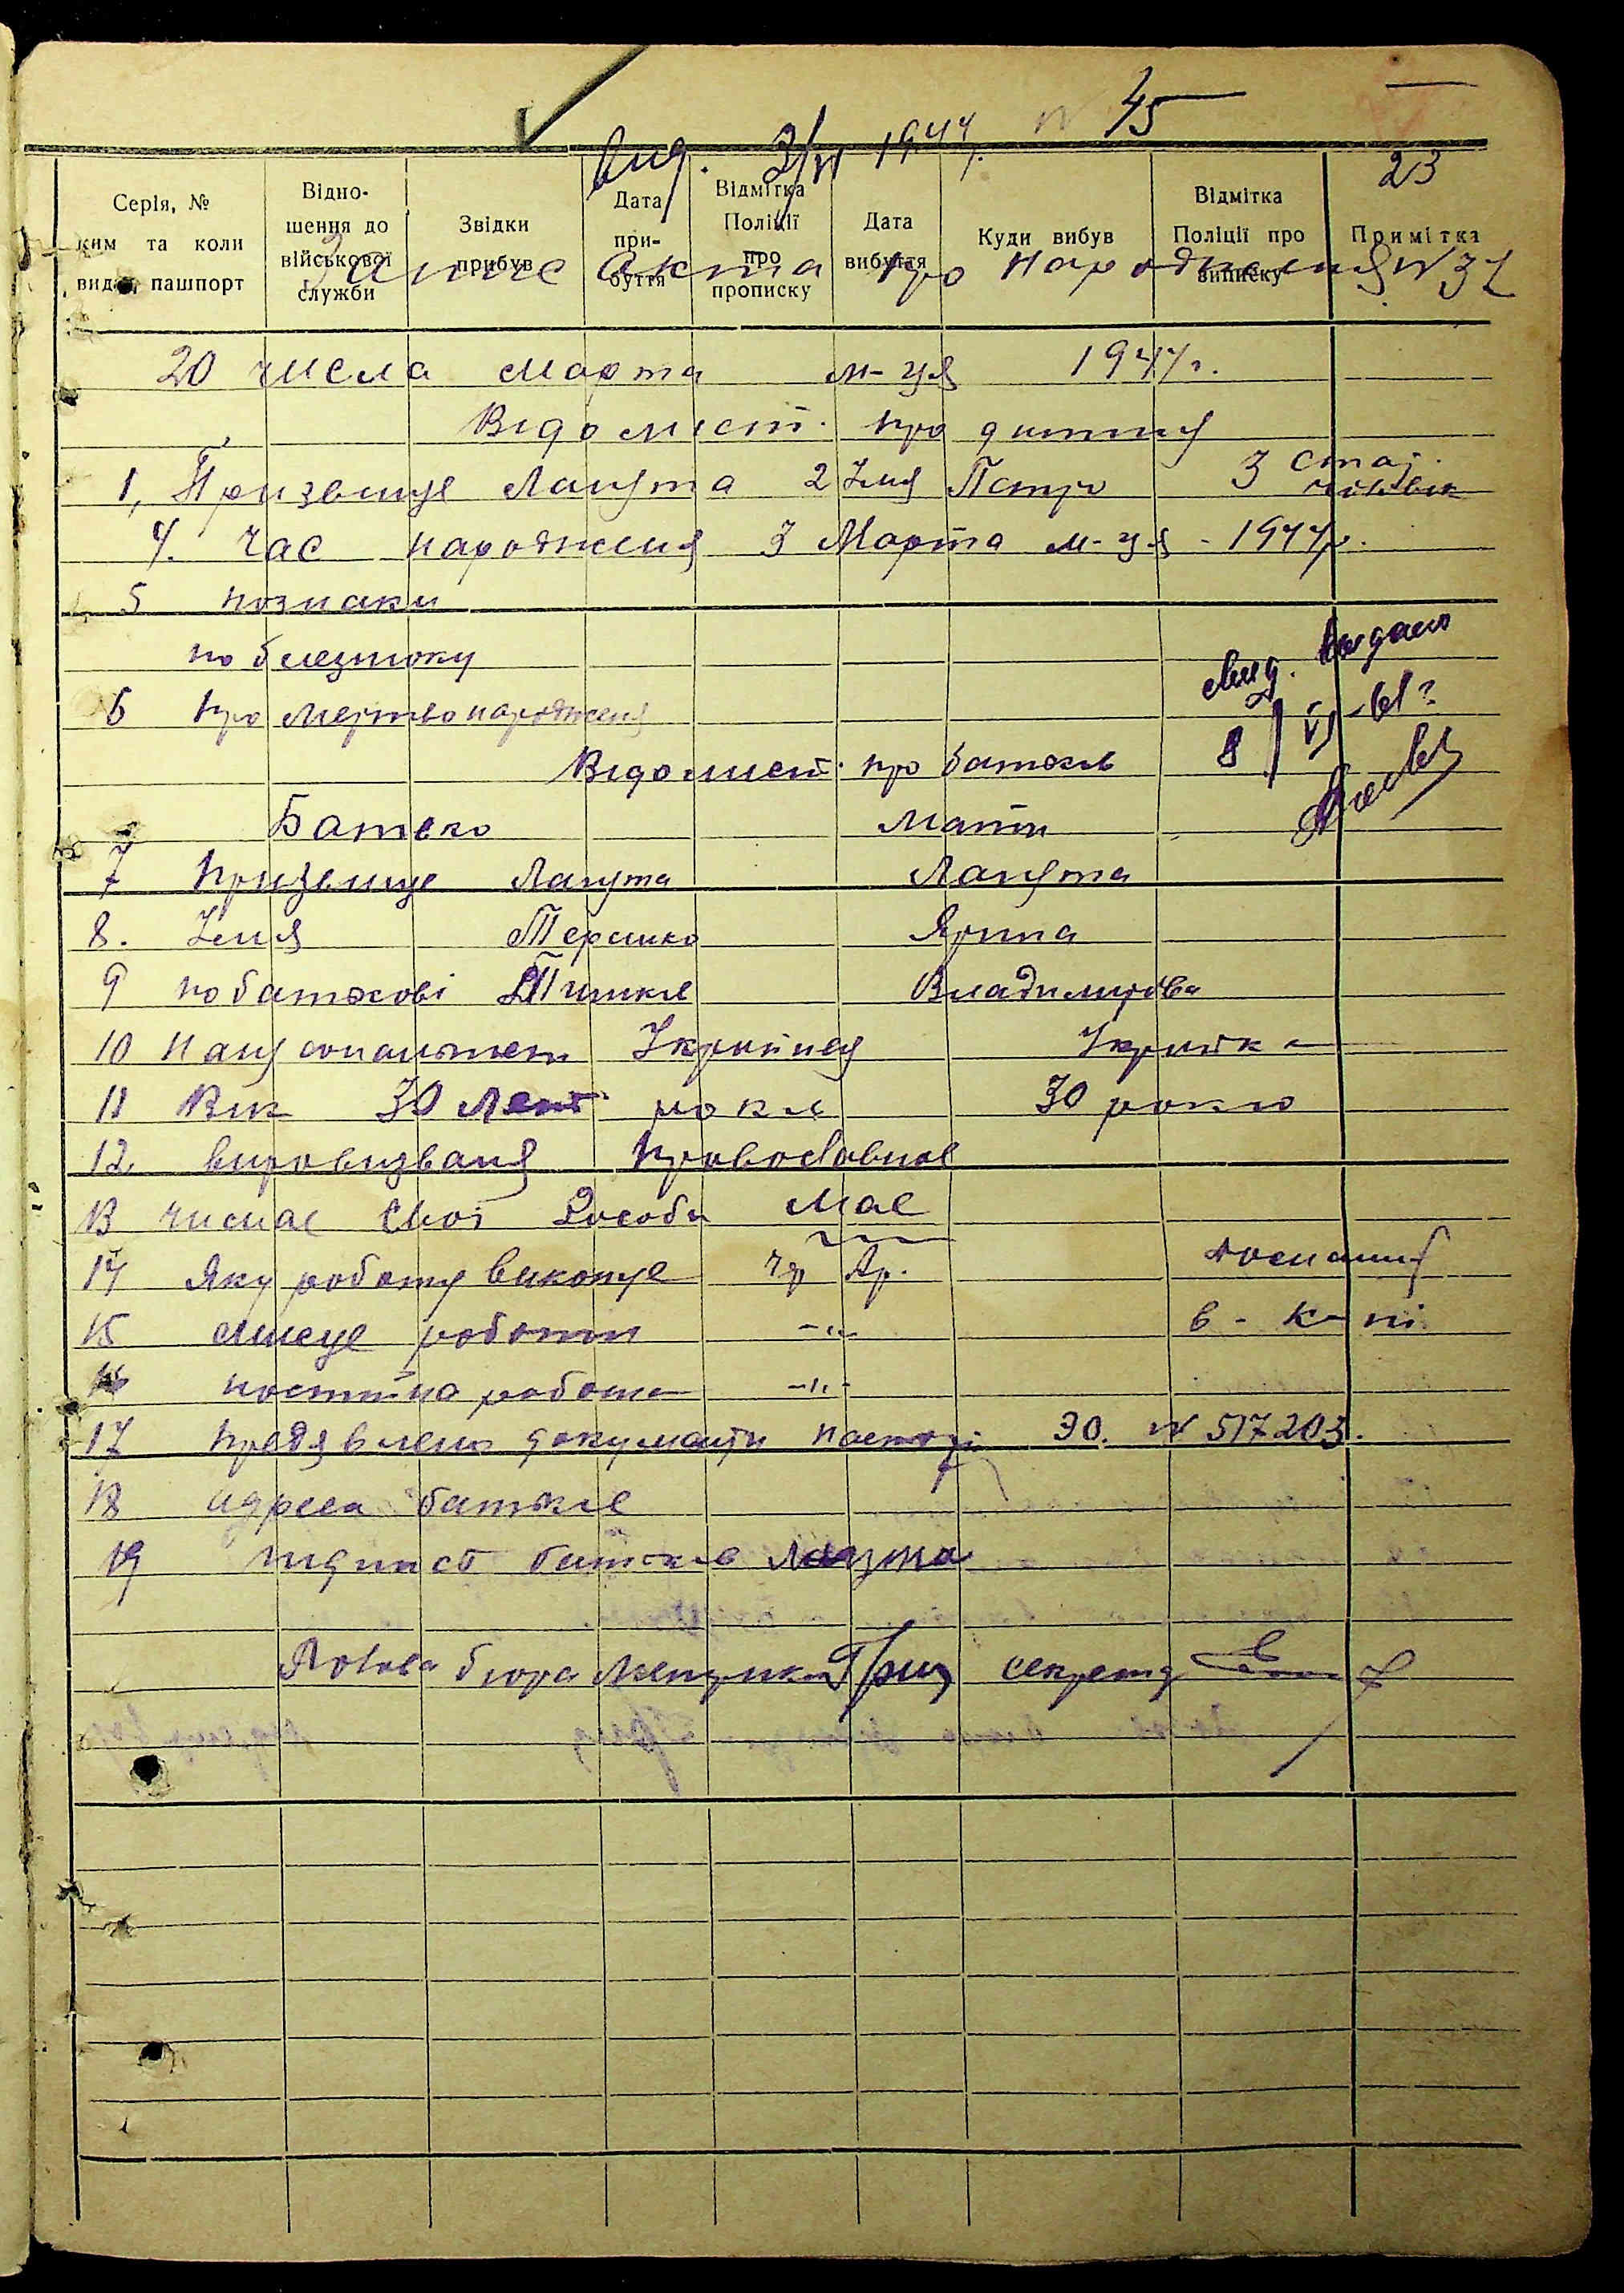 45
вид. 3/VI 1944
23
Серія, № ким та коли видан пашпорт
Відношення до військової служби
Звідки прибув
Дата прибуття
Відмітка Поліції про прописку
Дата вибуття
Куди вибув
Відмітка Поліції про виписку
Примітка
Запис Акта про народженя N 37
20 числа Марта м-ця 1944 г.
Відомист. про дитину
1, Призвище Лагута 2 Імя Петро 3 стат. чиловік
4. Час народженя 3 Марта м-ця - 1944 р.
5 познаки
по близнюку
6 про мертвонародженя
Свид. выдано
8/VI-61 г
Відомист. про батьків
Батько Мати
7 призвище Лагута Лагута
8. Імя Терешко Ярина
9 побатькові Владимировна
10 Нацсональтет Украйнец Украйнка
11 Вік 30 Лет рокив 30 рокив
12. вировизваня православное
13 чи має свої засоби має
14 Яку роботу виконує чр Ар.
15 Мисце роботи -"- в - к-ні
16 постійна робота -"-
17 предявлени документи паспорт ЭО. N 517203.
18 адреса батькив
19 підпис батькив
Голова бюра секретар